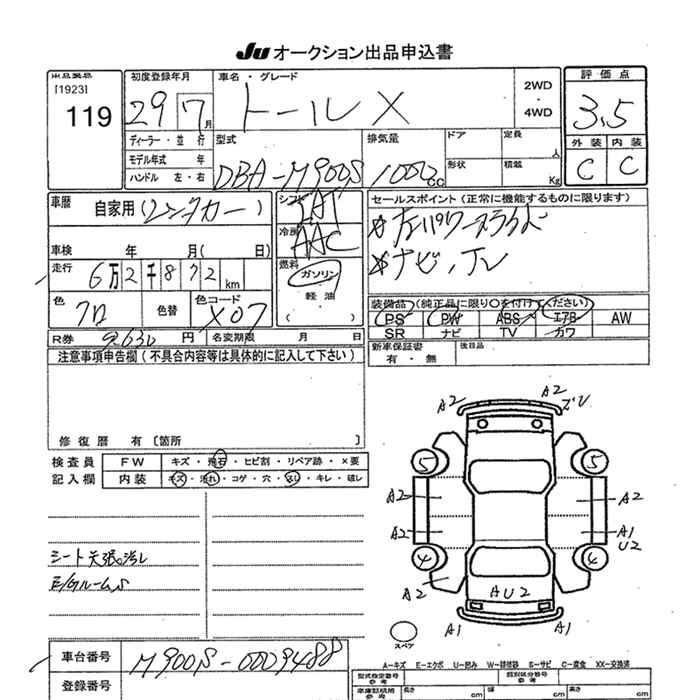 Ju オークション出品申込書
[1923]
119
初度登録年月
29 7 月
車名・グレード
トールX
2WD
・
4WD
評価点
3.5
外装 内装
C C
ディーラー・並行
モデル年式 年
ハンドル 左・右
型式
DBA-M900S
排気量
1000 CC
ドア
定員
人
形状
積載
Kg
車歴
自家用(レンタカー)
車検 年 月( 日)
走行
6万2千872 km
色
クロ
色替
色コード
X07
シフト
IAT
冷房
AAC
燃料
ガソリン
軽油
( )
セールスポイント(正常に機能するものに限ります)
左パワースライド
ナビ、TV
装備品(純正品に限り○を付けてください)
PS PW ABS エアB AW
SR ナビ TV カワ
R券 9630 円
名変期限 月 日
新車保証書
有・無
後日品
注意事項申告欄(不具合内容等は具体的に記入して下さい)
修復歴 有〔箇所 〕
検査員
記入欄
FW キズ・飛石・ヒビ割・リペア跡・×要
内装 キズ・汚れ・コゲ・穴・スレ・キレ・破レ
シート天張汚レ
E/Gルーム
A2 A2 ズレ
5 5
A2 A2
A2 A1
U2
4 4
A2 AU2
A1 A1
スペア
A-キズ E-エクボ U-凹み W-補修跡 S-サビ C-腐食 XX-交換済
車台番号
M900S-0009488
登録番号
型式指定番号
参考
類別区分番号
参考
車庫証明用
参考
長さ cm
幅 cm
高さ cm